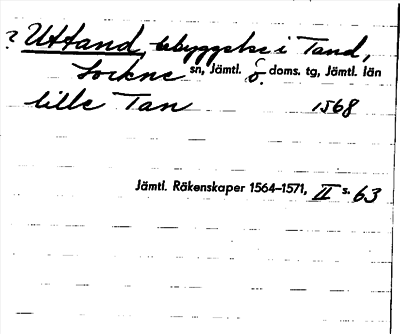 ? Uttand, bebyggelse i Tand,
Lockne sn, Jämtl. ö. doms. tg, Jämtl. län
lille Tan 1568
Jämtl. Räkenskaper 1564–1571, II s. 63